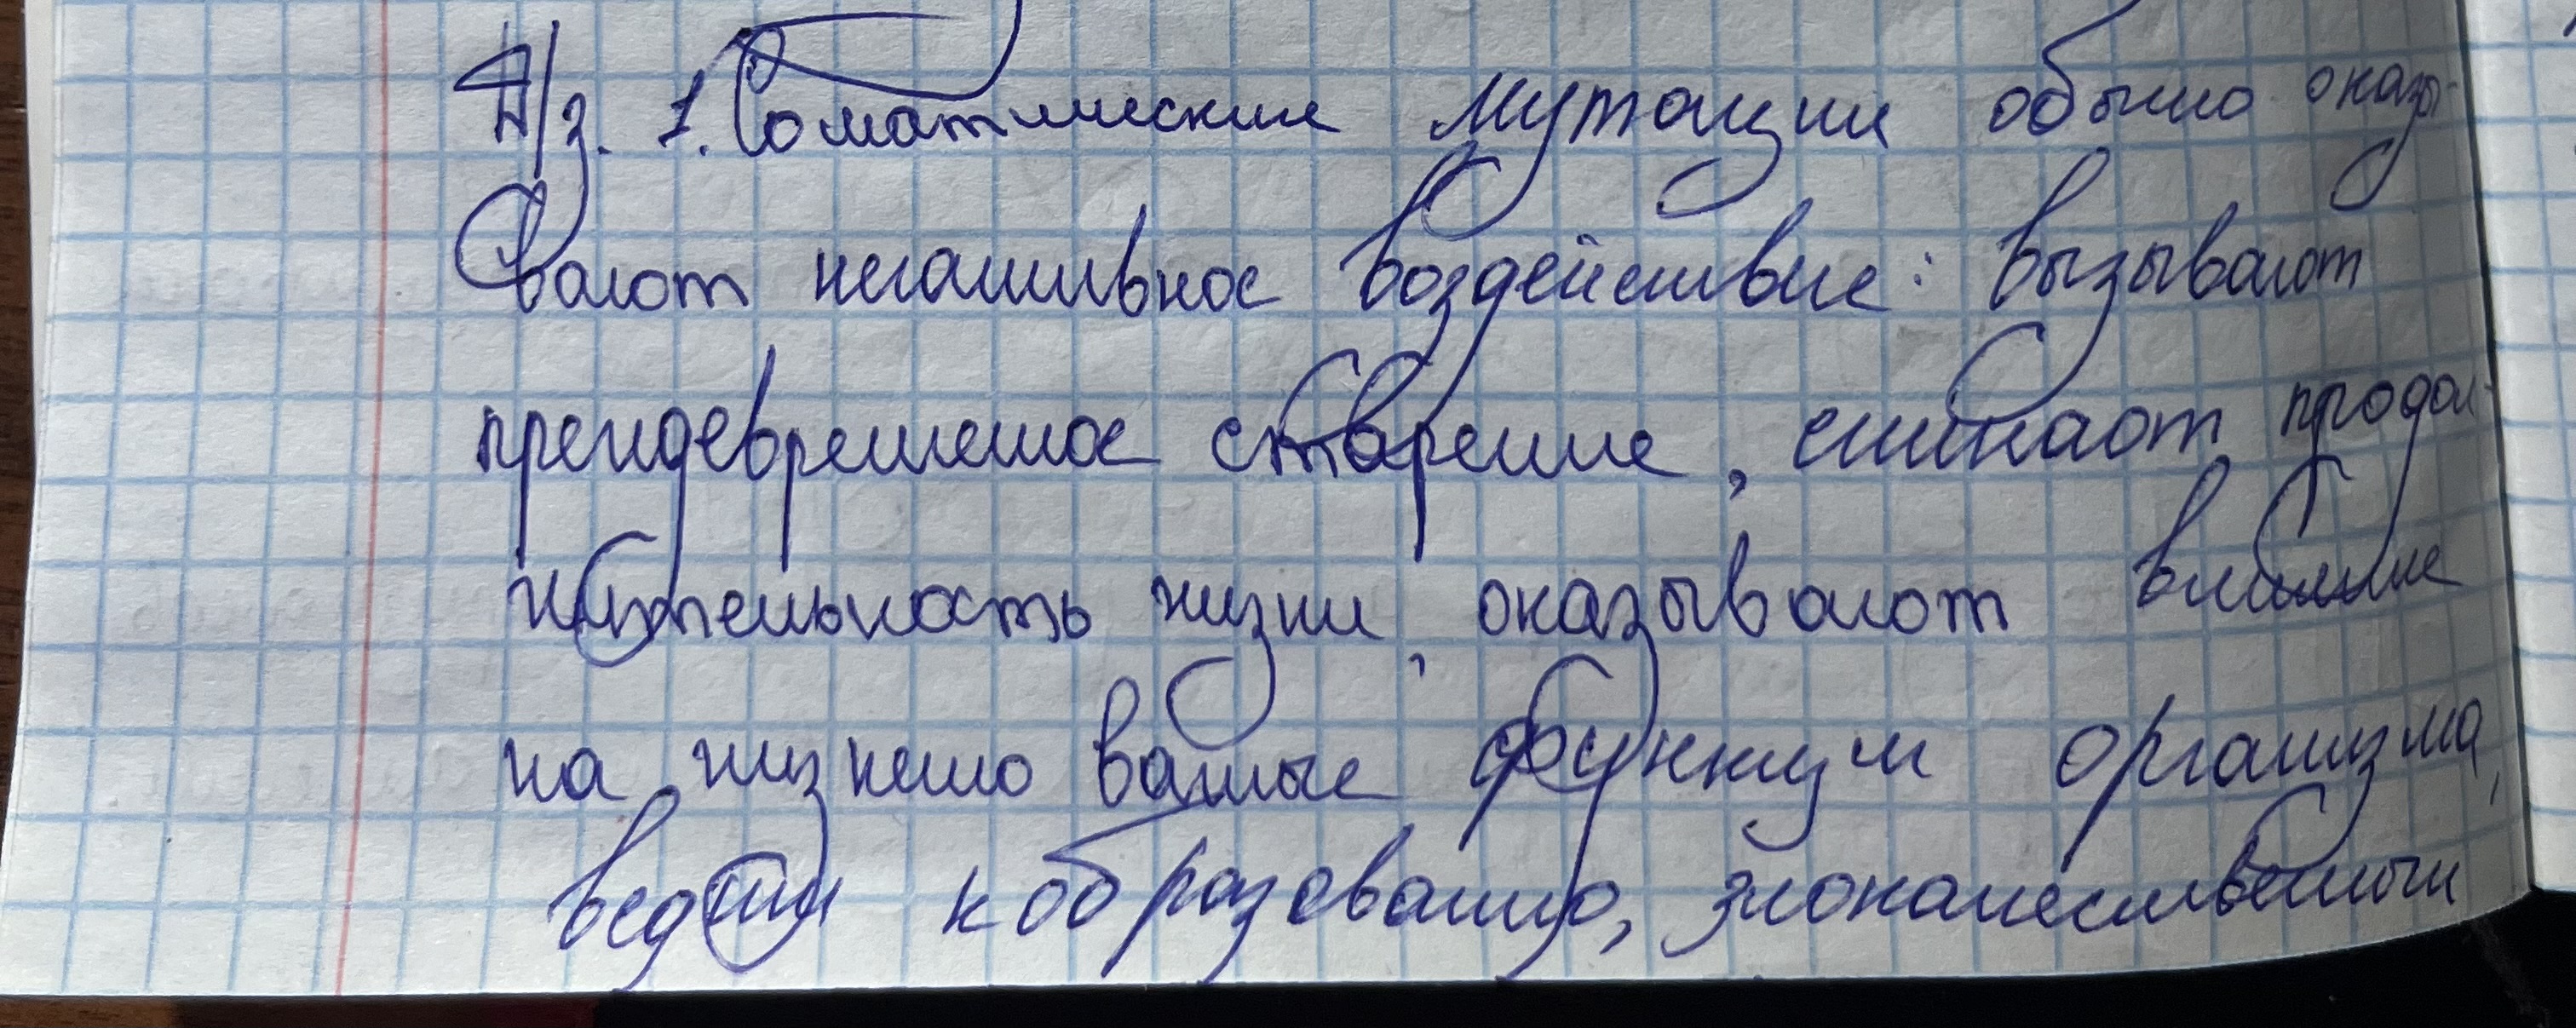 Д/з. 1. Соматические мутации обычно оказы-
вают негативное воздействие: вызывают
преждевременное старение, снижают продол-
жительность жизни, оказывают влияние
на жизненно важные функции организма,
ведут к образованию, злокачественных